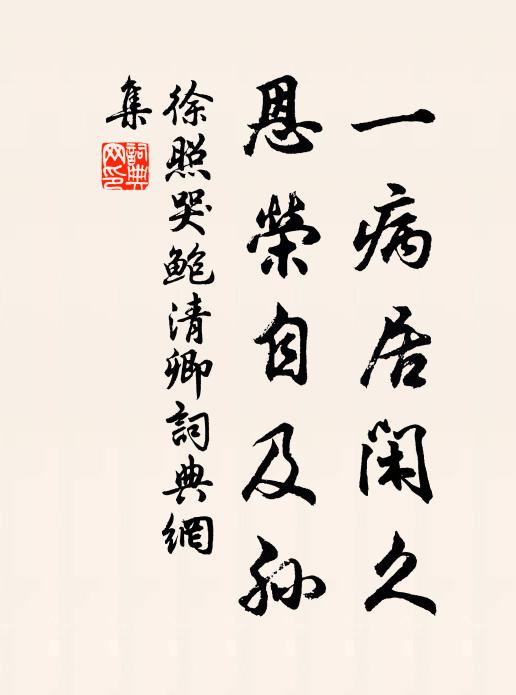 一病居閑久
恩榮自及孙
徐照哭鲍清卿詞典網
集
詞典网印